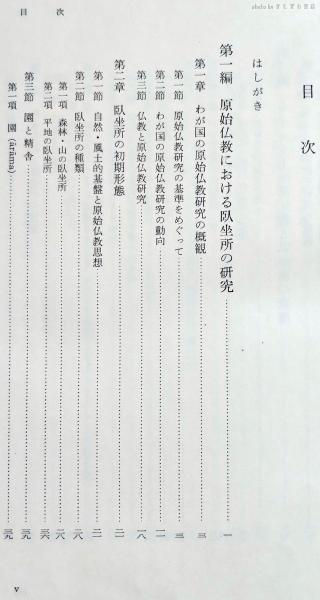 目次
はしがき
第一編 原始仏教における臥坐所の研究 一
第一章 わが国の原始仏教研究の概観 三
第一節 原始仏教研究の基準をめぐって 三
第二節 わが国の原始仏教研究の動向 一一
第三節 仏教と原始仏教研究 一八
第二章 臥坐所の初期形態 二一
第一節 自然・風土的基盤と原始仏教思想 二一
第二節 臥坐所の種類 二八
第一項 森林・山の臥坐所 二八
第二項 平地の臥坐所 三六
第三節 園と精舎 三九
第一項 園(ārāma) 三九
目次
v
photo by